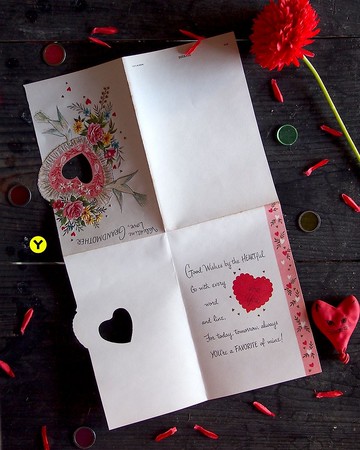 Valentine
Love, GRANDMOTHER
Good Wishes by the HEARTful
Go with every
word
and line,
For today, tomorrow, always
YOU're a FAVORITE of mine!
Y